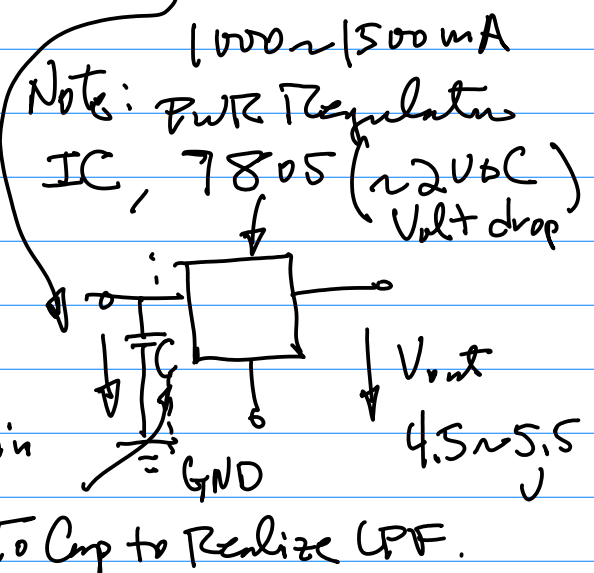 1000~1500mA
Note: PWR Regulator
IC, 7805 (~2VDC
Volt drop)
i
C
Vout
in
4.5~5.5
V
GND
To Cap to Realize LPF.